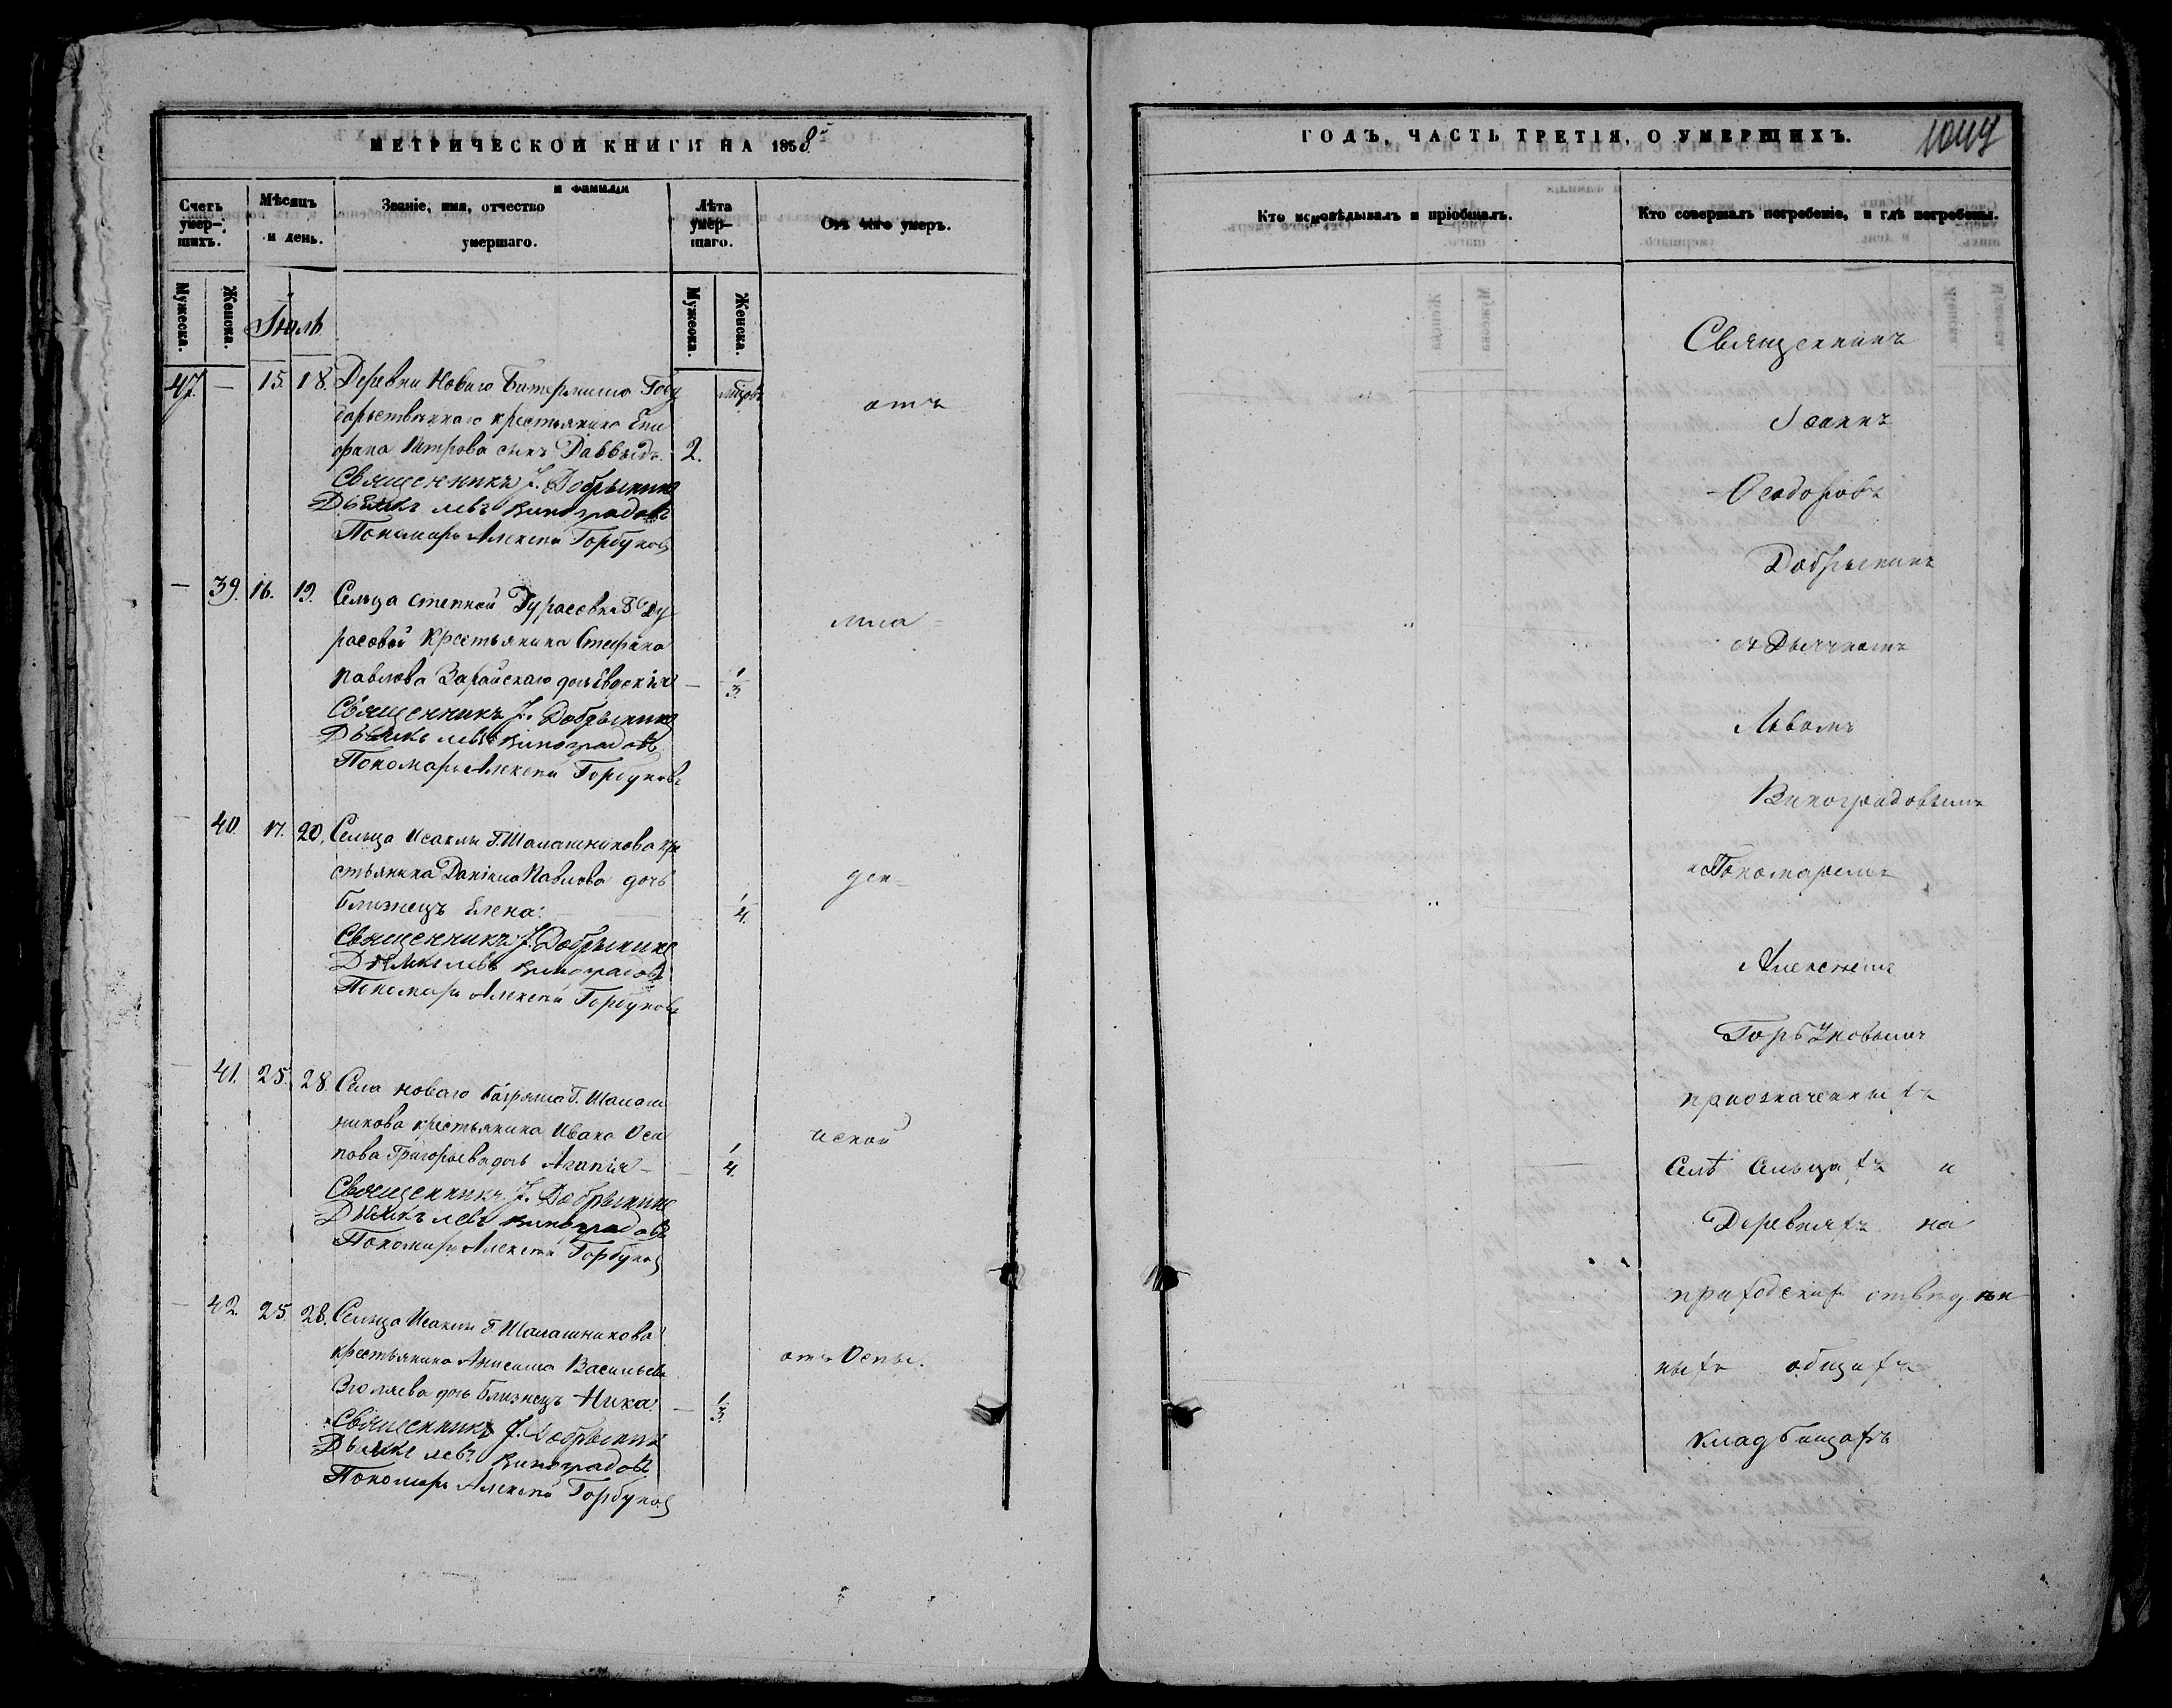 МЕТРИЧЕСКОЙ КНИГИ НА 1858й
Счетъ умер-шихъ.
Мѣсяцъ и день.
Званіе, имя, отчество и фамилія умершаго.
Лѣта умер-шаго.
Отъ чего умеръ.
Мужеска. Женска. Мужеска. Женска.
Іюль
47. — 15. 18. Деревни Новаго Госу
дарственнаго крестьянина Епи
фана Петрова сынъ Даввыдъ. 2.
отъ
Священникъ І. Добрынинъ
Дьячекъ Левъ Виноградовъ
Пономарь Алексѣй Горбуновъ
— 39. 16. 19. Сельца степной Дурасовки Г. Ду
расовой крестьянина Стефана
Павлова Зарайскаго дочь Евдокія — 1/3.
мла=
Священникъ І. Добрынинъ
Дьячекъ Левъ Виноградовъ
Пономарь Алексѣй Горбуновъ
— 40. 17. 20. Сельца Исаклы Г. Шалашникова кре
стьянина Даніила Павлова дочь
близнецъ Елена. 1/4.
ден=
Священникъ І. Добрынинъ
Дьячекъ Левъ Виноградовъ
Пономарь Алексѣй Горбуновъ
— 41. 25. 28. Села новаго Г. Шалаш
никова крестьянина Ивана Оси
пова Григорьева дочь Агапія — 1/4.
ческой
Священникъ І. Добрынинъ
Дьячекъ Левъ Виноградовъ
Пономарь Алексѣй Горбуновъ
— 42. 25. 28. Сельца Исаклы Г. Шалашникова
крестьянина Анисима Васильева
дочь близнецъ — 1/3.
отъ Оспы.
Священникъ І. Добрынинъ
Дьячекъ Левъ Виноградовъ
Пономарь Алексѣй Горбуновъ
ГОДЪ, ЧАСТЬ ТРЕТІЯ, О УМЕРШИХЪ.
Кто исповѣдывалъ и пріобщалъ.
Кто совершалъ погребеніе, и гдѣ погребены.
Священникъ
Іоаннъ
Ѳеодоровъ
Добрынинъ
съ Дьячкомъ
Львомъ
Виноградовымъ
и Пономаремъ
Алексѣемъ
Горбуновымъ
при означенныхъ
Селѣ Сельцахъ и
Деревняхъ на
приходскихъ отведен
ныхъ общихъ
кладбищахъ